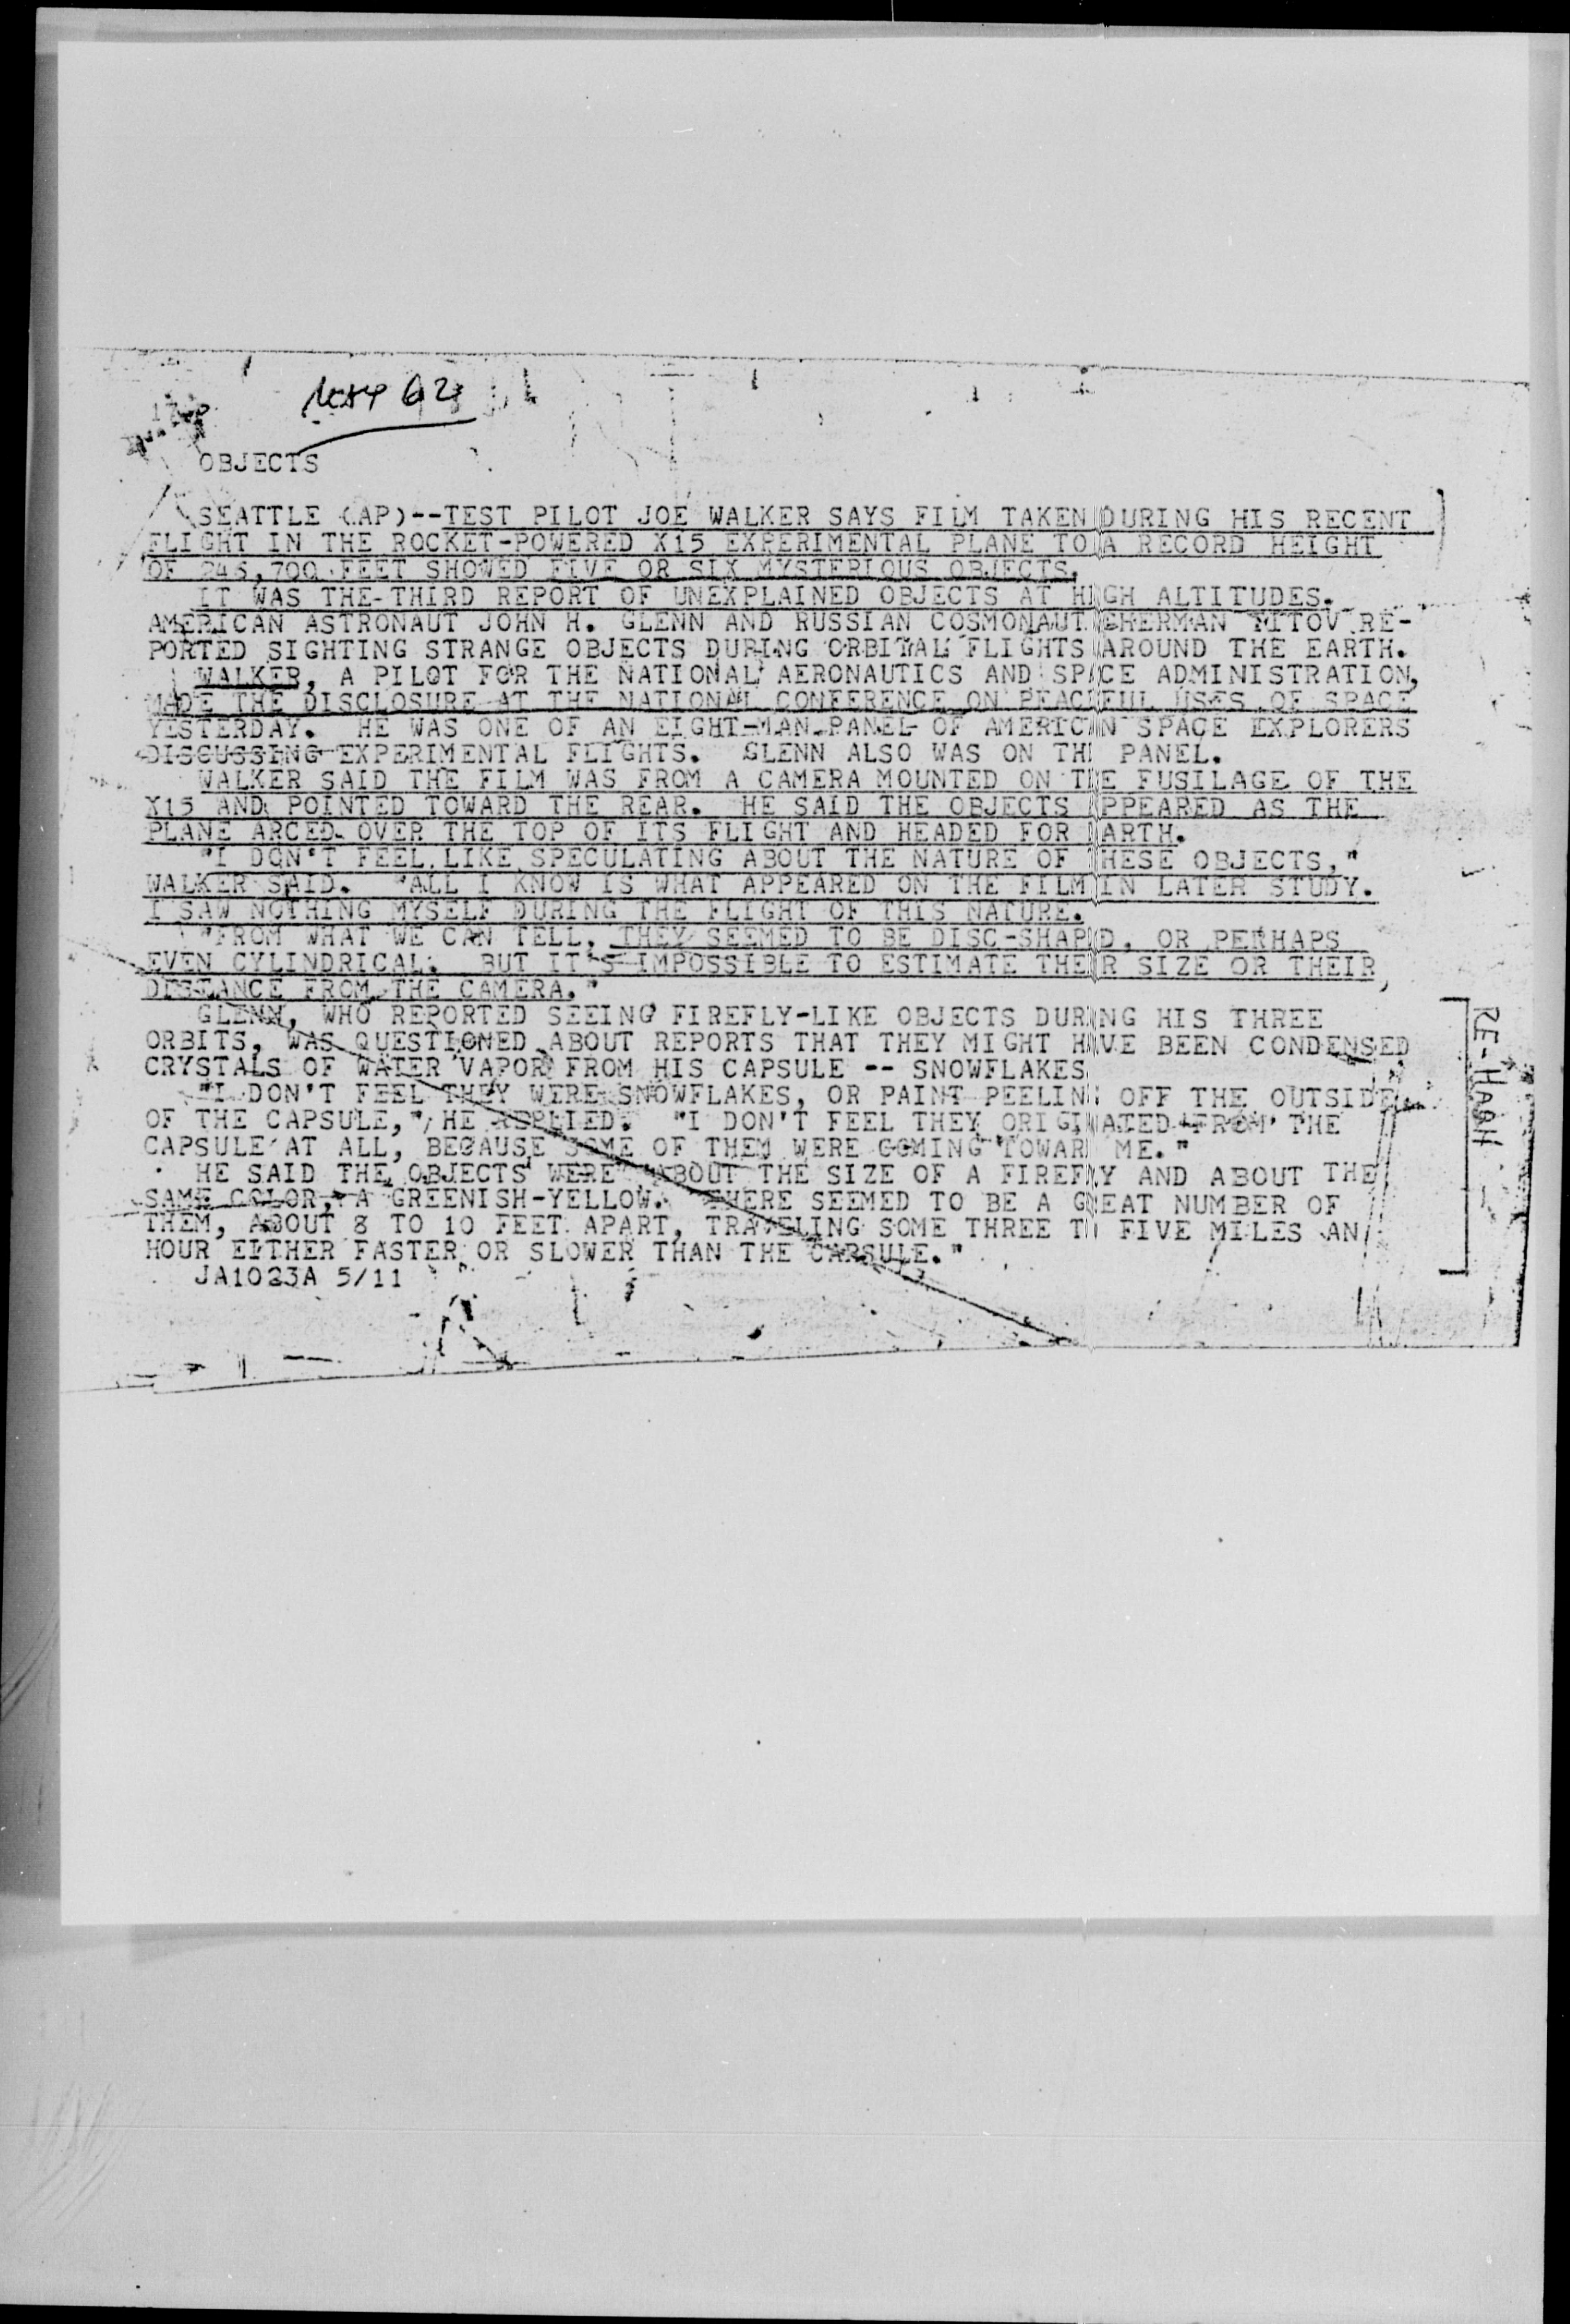 MAY 62
OBJECTS
SEATTLE (AP)--TEST PILOT JOE WALKER SAYS FILM TAKEN DURING HIS RECENT
FLIGHT IN THE ROCKET-POWERED X15 EXPERIMENTAL PLANE TO A RECORD HEIGHT
OF 246,700 FEET SHOWED FIVE OR SIX MYSTERIOUS OBJECTS.
IT WAS THE THIRD REPORT OF UNEXPLAINED OBJECTS AT HIGH ALTITUDES.
AMERICAN ASTRONAUT JOHN H. GLENN AND RUSSIAN COSMONAUT GHERMAN TITOV RE-
PORTED SIGHTING STRANGE OBJECTS DURING ORBITAL FLIGHTS AROUND THE EARTH.
WALKER, A PILOT FOR THE NATIONAL AERONAUTICS AND SPACE ADMINISTRATION,
MADE THE DISCLOSURE AT THE NATIONAL CONFERENCE ON PEACEFUL USES OF SPACE
YESTERDAY. HE WAS ONE OF AN EIGHT-MAN PANEL OF AMERICAN SPACE EXPLORERS
DISCUSSING EXPERIMENTAL FLIGHTS. GLENN ALSO WAS ON THE PANEL.
WALKER SAID THE FILM WAS FROM A CAMERA MOUNTED ON THE FUSILAGE OF THE
X15 AND POINTED TOWARD THE REAR. HE SAID THE OBJECTS APPEARED AS THE
PLANE ARCED OVER THE TOP OF ITS FLIGHT AND HEADED FOR EARTH.
"I DON'T FEEL LIKE SPECULATING ABOUT THE NATURE OF THESE OBJECTS,"
WALKER SAID. "ALL I KNOW IS WHAT APPEARED ON THE FILM IN LATER STUDY.
I SAW NOTHING MYSELF DURING THE FLIGHT OF THIS NATURE.
"FROM WHAT WE CAN TELL, THEY SEEMED TO BE DISC-SHAPED, OR PERHAPS
EVEN CYLINDRICAL. BUT IT'S IMPOSSIBLE TO ESTIMATE THEIR SIZE OR THEIR
DISTANCE FROM THE CAMERA."
GLENN, WHO REPORTED SEEING FIREFLY-LIKE OBJECTS DURING HIS THREE
ORBITS, WAS QUESTIONED ABOUT REPORTS THAT THEY MIGHT HAVE BEEN CONDENSED
CRYSTALS OF WATER VAPOR FROM HIS CAPSULE -- SNOWFLAKES
"I DON'T FEEL THEY WERE SNOWFLAKES, OR PAINT PEELING OFF THE OUTSIDE
OF THE CAPSULE," HE REPLIED. "I DON'T FEEL THEY ORIGINATED FROM THE
CAPSULE AT ALL, BECAUSE SOME OF THEM WERE COMING TOWARD ME."
HE SAID THE OBJECTS WERE "ABOUT THE SIZE OF A FIREFLY AND ABOUT THE
SAME COLOR, A GREENISH-YELLOW. THERE SEEMED TO BE A GREAT NUMBER OF
THEM, ABOUT 8 TO 10 FEET APART, TRAVELING SOME THREE TO FIVE MILES AN
HOUR EITHER FASTER OR SLOWER THAN THE CAPSULE."
JA1023A 5/11